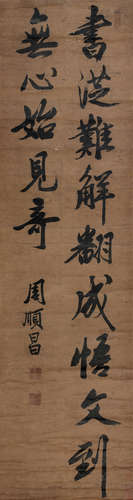 書從難解翻成悟文到
無心始見奇
周順昌